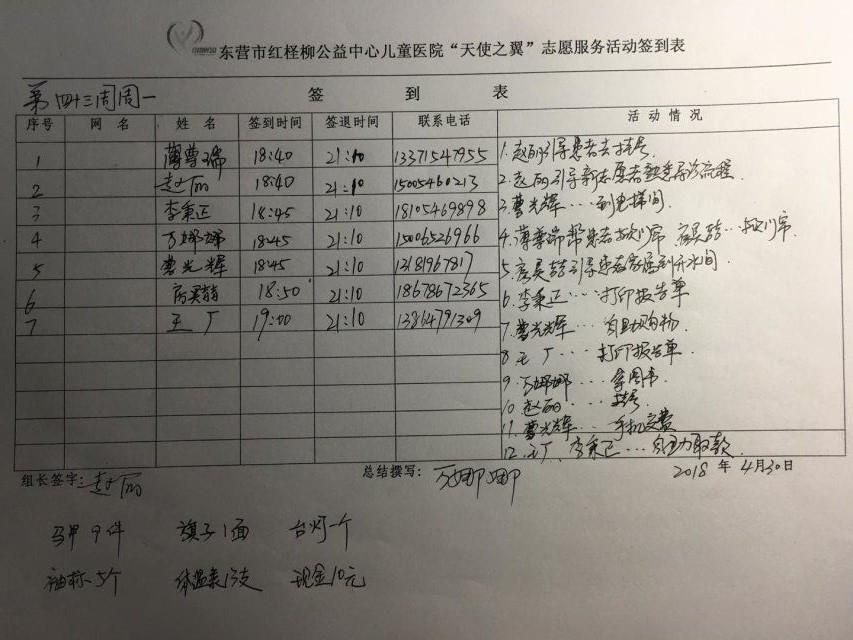 东营市红柽柳公益中心儿童医院“天使之翼”志愿服务活动签到表
第四十三周周一
签 到 表
序号 网 名 姓 名 签到时间 签退时间 联系电话 活 动 情 况
1 薄尊瑞 18:40 21:10 13371547955
2 赵丽 18:40 21:10 15005460213
3 李秉正 18:45 21:10 18105469898
4 万娜娜 18:45 21:10 15006526966
5 曹光辉 18:45 21:10 13181967817
6 房昊喆 18:50 21:10 18678672365
7 王广 19:00 21:10 13864791309
1.赵丽引导患者去挂号
2.赵丽引导新志愿者熟悉导诊流程
3.曹光辉…到电梯间
4.薄尊瑞帮患者掀门帘 房昊喆…掀门帘
5.房昊喆引导患者家属到开水间
6.李秉正…打印报告单
7.曹光辉…自助购物
8.王广…打印报告单
9.万娜娜…拿围巾
10.赵丽…挂号
11.曹光辉…手机交费
12.王广、李秉正…自助取款
组长签字:赵丽 总结撰写:万娜娜 2018 年 4月30日
马甲9件 旗子1面 台灯一个
袖标5个 体温表13支 现金10元